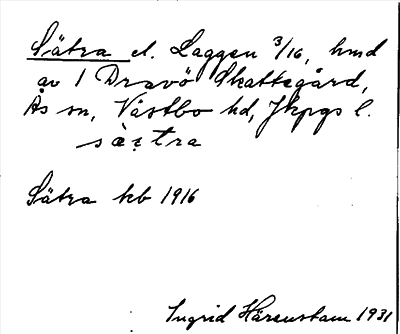 Sätra el. Laggen 3/16, hmd
av 1 Dravö Skattegård,
Ås sn, Västbo hd, Jkpgs l.
sätra
Sätra kb 1916
Ingrid Härenstam 1931